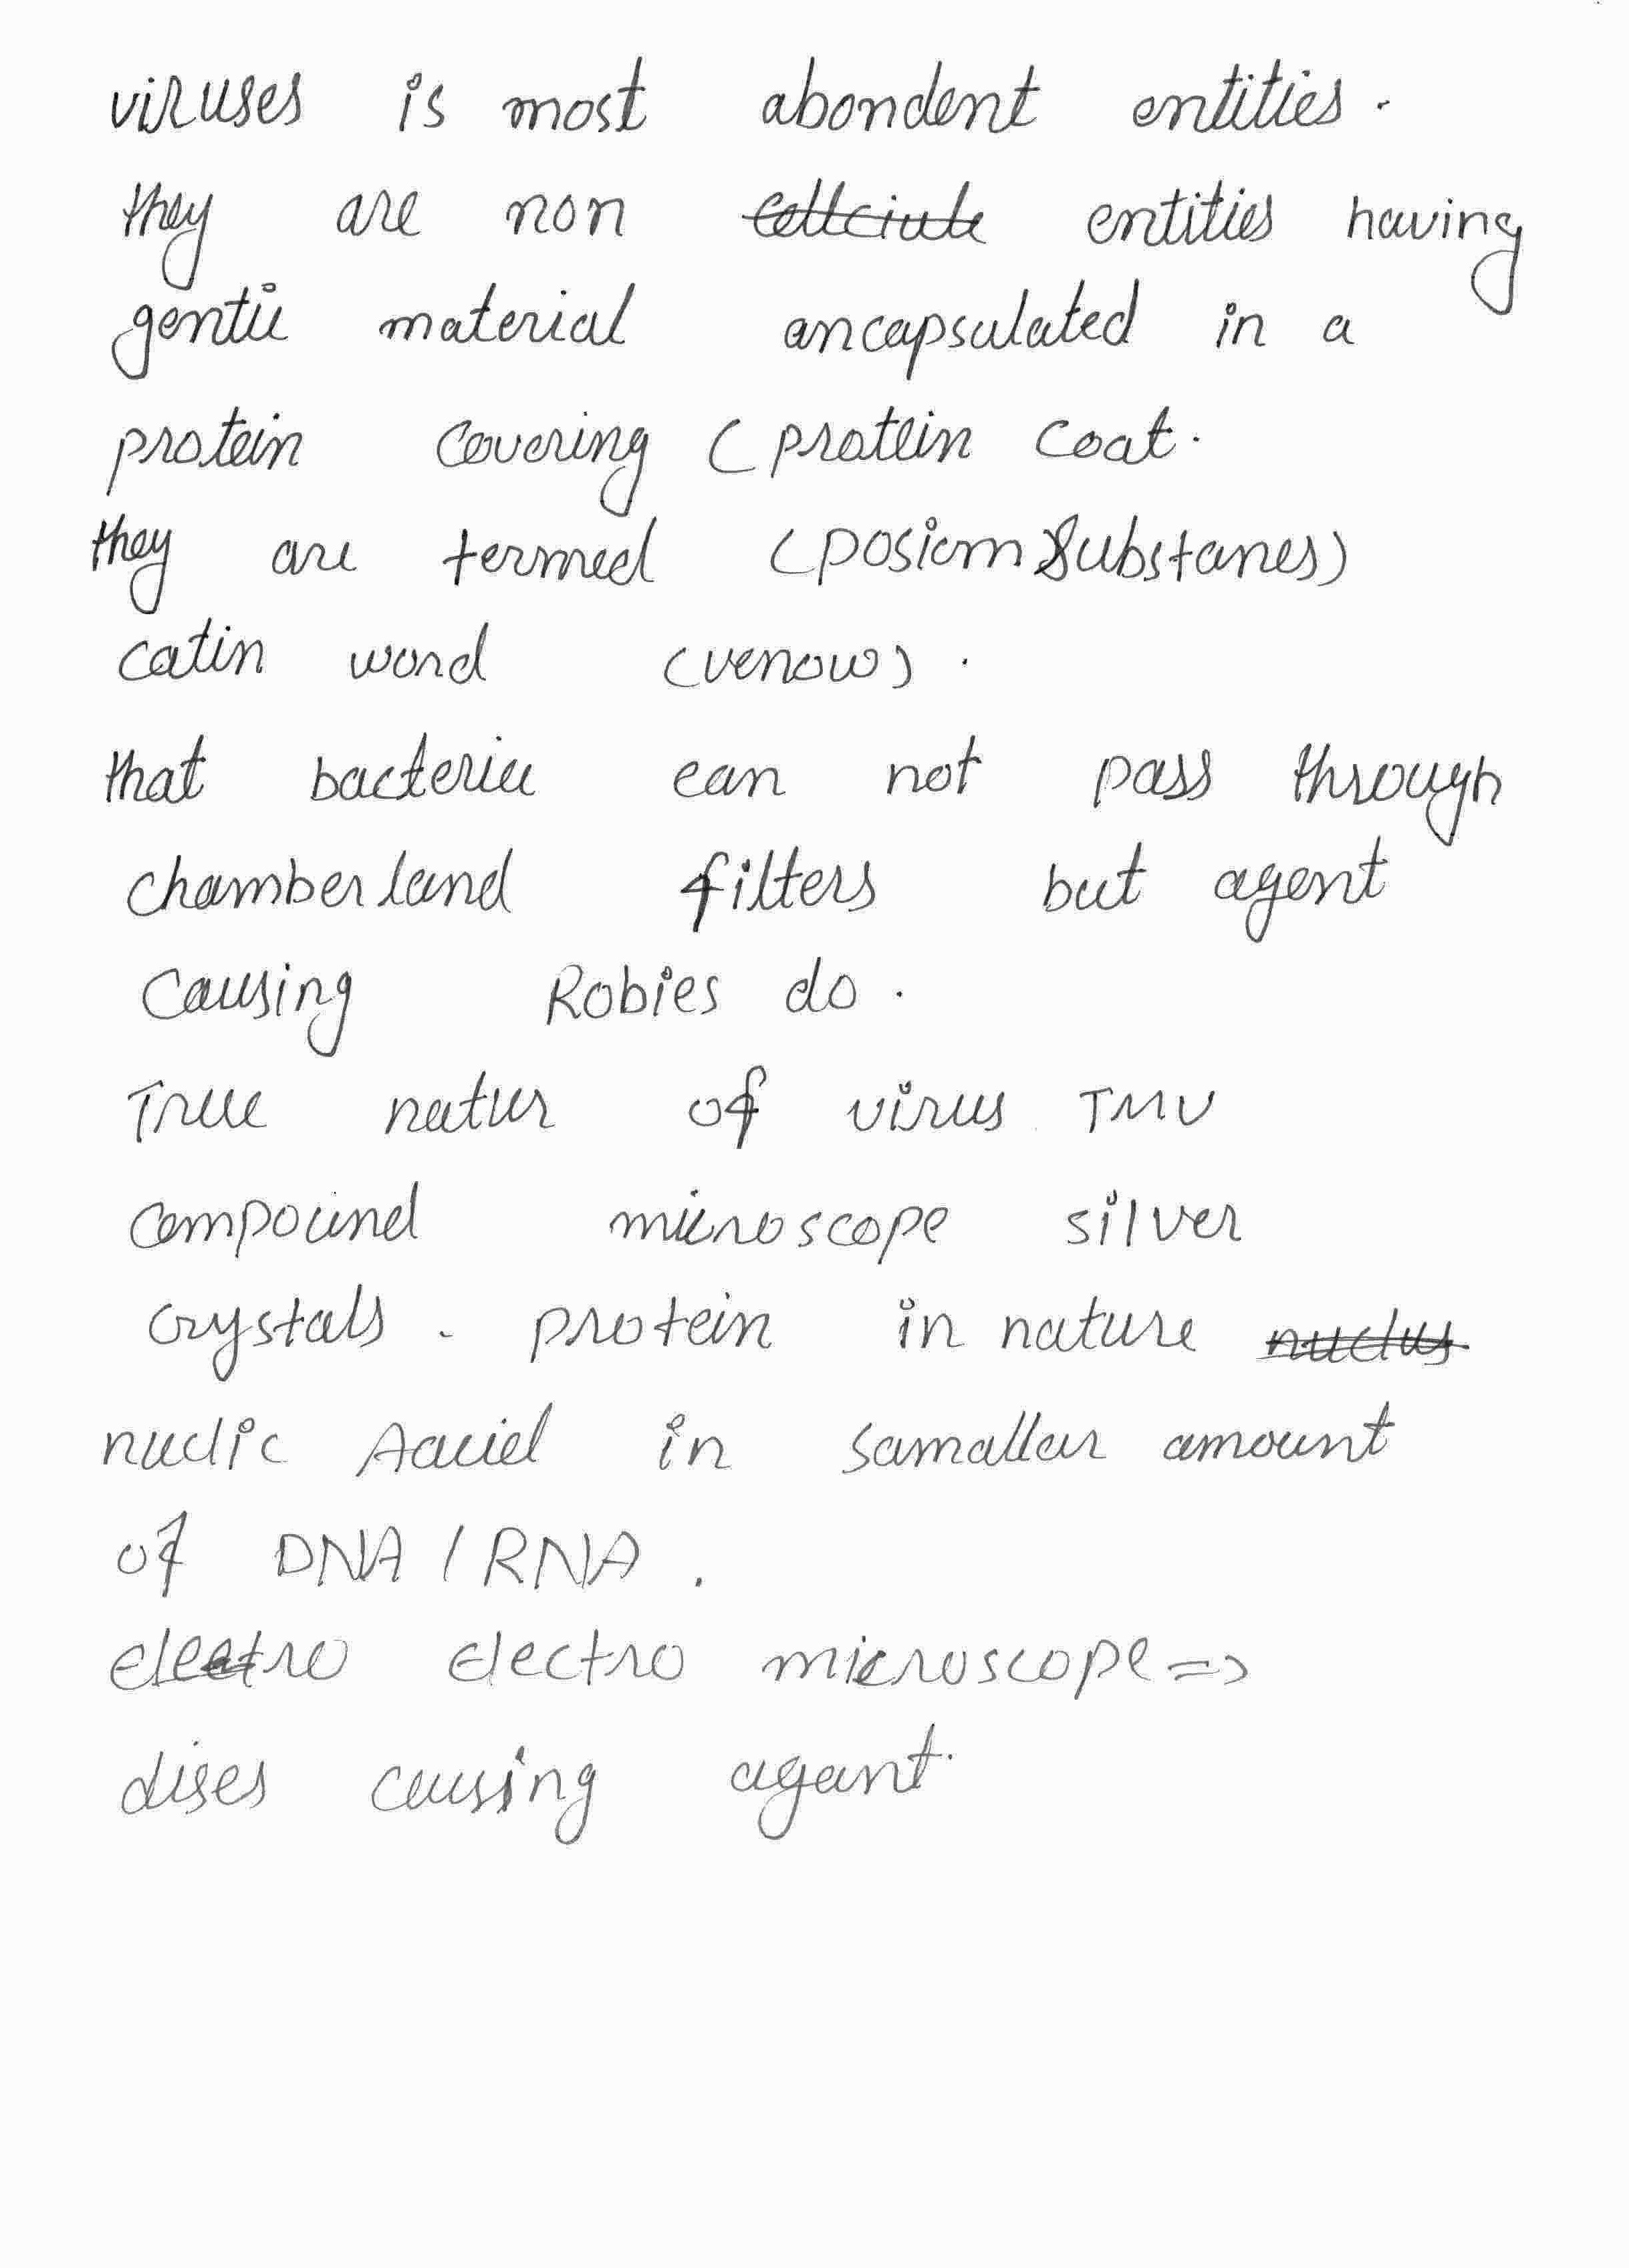 viruses is most abondent entities.
they are non entities having
gentic material ancapsulated in a
protein covering (protein coat.
they are termed (posiom substanes)
catin word (venow).
that bacteria can not pass through
chamberland filters but agent
causing Robies do.
True natur of virus TMV
compound microscope silver
crystals. protein in nature nuclus
nuclic Aacid in samallar amount
of DNA / RNA.
electro electro microscope =>
dises causing agant.